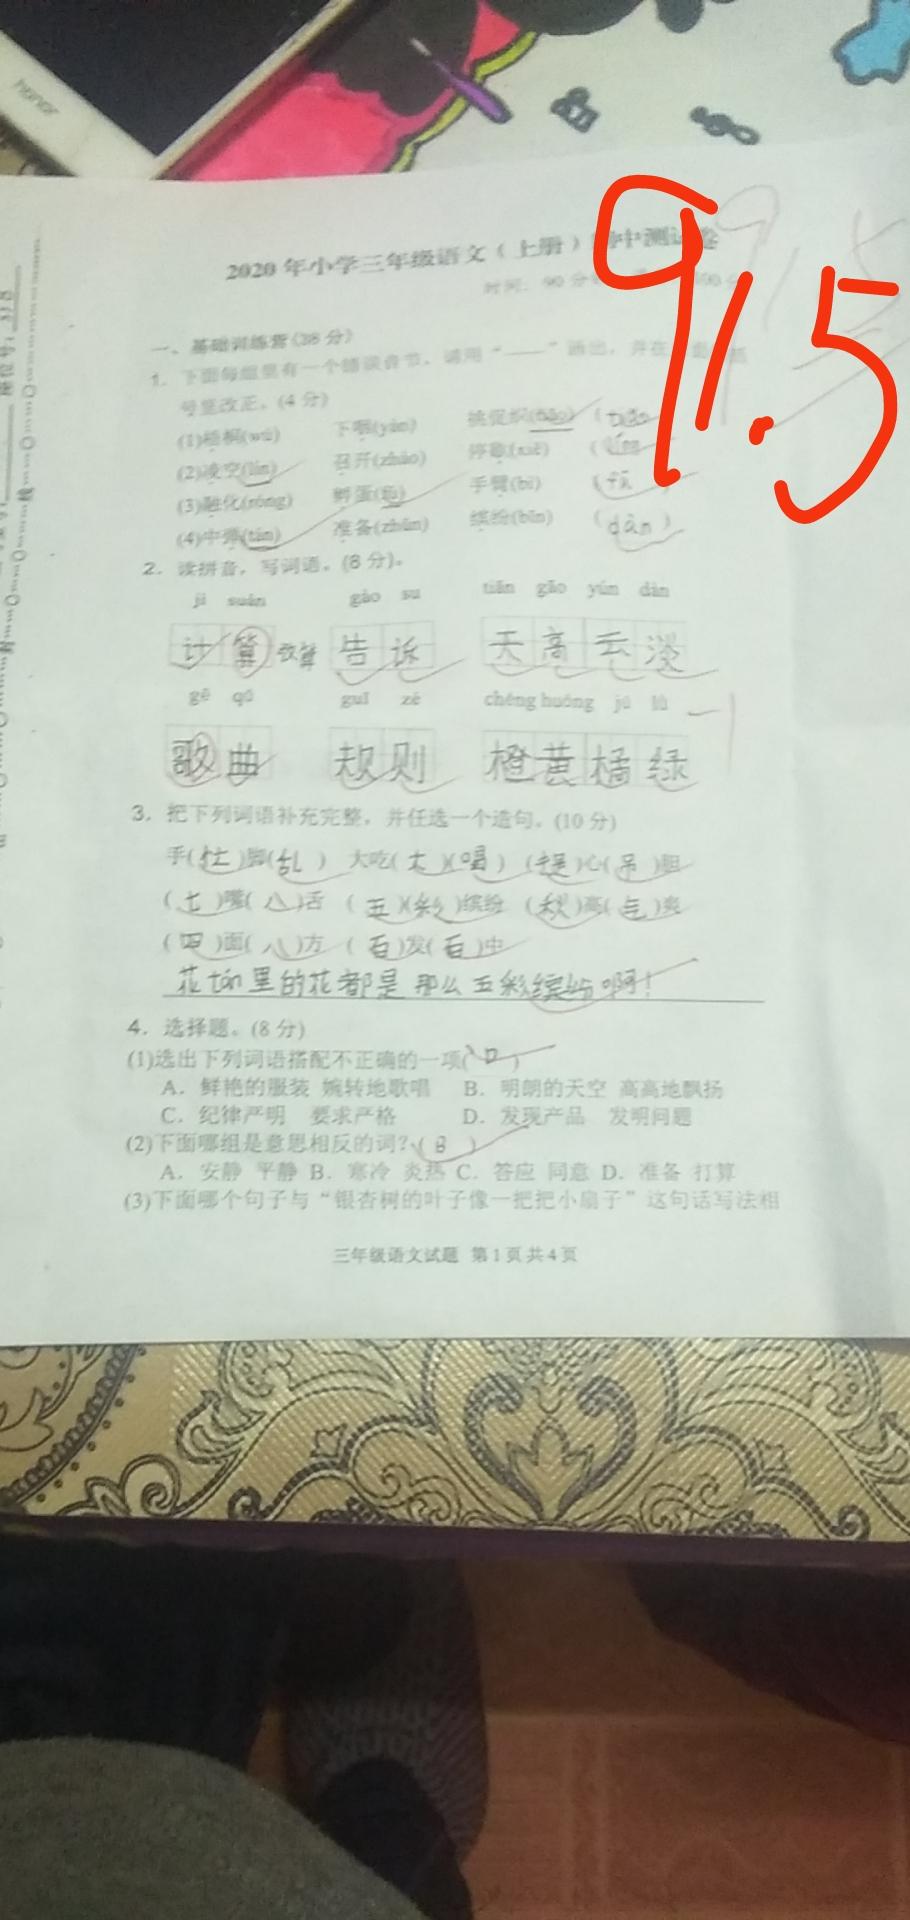 honor
91.5
2020年小学三年级语文(上册)期中测试卷
时间：90分
一、基础训练营(38分)
1. 下面每组里有一个错误音节，请用“——”画出，并在
号里改正。(4分)
(1)梧桐(wú) 下咽(yàn) 挑促织(tiāo) (tiǎo
(2)凌空(lín) 召开(zhào) 停歇(xiē)
(3)融化(róng) 孵蛋(fū) 手臂(bì)
(4)中弹(tán) 准备(zhǔn) 缤纷(bīn) (dàn)
2. 读拼音，写词语。(8分)。
jì suàn gào su tiān gāo yún dàn
计算 告诉 天高云淡
gē qǔ guī zé chéng huáng jú lǜ
歌曲 规则 橙黄橘绿
3. 把下列词语补充完整，并任选一个造句。(10分)
手(忙)脚(乱) 大吃(大)(喝) (提)心(吊)胆
(七)嘴(八)舌 (五)(彩)缤纷 (秋)高(气)爽
(四)面(八)方 (百)发(百)中
花tán里的花都是那么五彩缤纷啊!
4. 选择题。(8分)
(1)选出下列词语搭配不正确的一项(D)
A. 鲜艳的服装 婉转地歌唱 B. 明朗的天空 高高地飘扬
C. 纪律严明 要求严格 D. 发现产品 发明问题
(2)下面哪组是意思相反的词？(B)
A. 安静 平静 B. 寒冷 炎热 C. 答应 同意 D. 准备 打算
(3)下面哪个句子与“银杏树的叶子像一把把小扇子”这句话写法相
三年级语文试题 第1页共4页